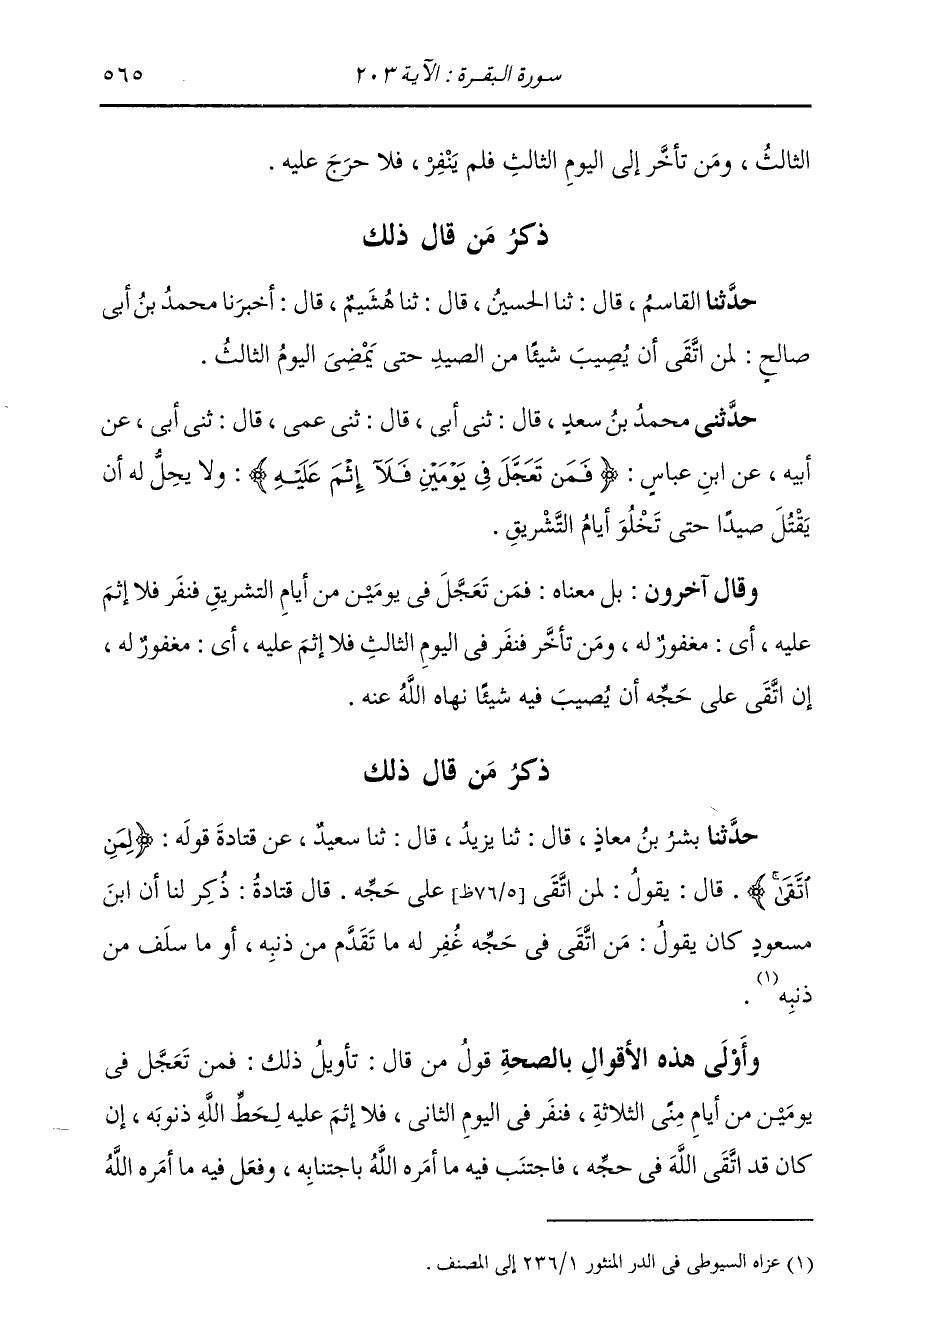 سورة البقرة : الآية ٢٠٣ ٥٦٥
الثالثُ ، ومَن تأخَّر إلى اليومِ الثالثِ فلم يَنْفِرْ ، فلا حرَجَ عليه .
ذكرُ مَن قال ذلك
حدَّثنا القاسمُ ، قال : ثنا الحسينُ ، قال : ثنا هُشَيمٌ ، قال : أخبرَنا محمدُ بنُ أبى
صالحٍ : لمن اتَّقَى أن يُصِيبَ شيئًا من الصيدِ حتى يَمْضِىَ اليومُ الثالثُ .
حدَّثنى محمدُ بنُ سعدٍ ، قال : ثنى أبى ، قال : ثنى عمى ، قال : ثنى أبى ، عن
أبيه ، عن ابنِ عباسٍ : ﴿ فَمَن تَعَجَّلَ فِى يَوْمَيْنِ فَلَآ إِثْمَ عَلَيْهِ ﴾ : ولا يحِلُّ له أن
يَقْتُلَ صيدًا حتى تَخْلُوَ أيامُ التَّشْريقِ .
وقال آخرون : بل معناه : فمَن تَعَجَّلَ فى يومَيْن من أيامِ التشريقِ فنفَر فلا إثمَ
عليه ، أى : مغفورٌ له ، ومَن تأخَّر فنفَر فى اليومِ الثالثِ فلا إثمَ عليه ، أى : مغفورٌ له ،
إن اتَّقَى على حَجِّه أن يُصيبَ فيه شيئًا نهاه اللَّهُ عنه .
ذكرُ مَن قال ذلك
حدَّثنا بشرُ بنُ معاذٍ ، قال : ثنا يزيدُ ، قال : ثنا سعيدٌ ، عن قتادةَ قولَه : ﴿لِمَنِ
ٱتَّقَىٰۗ﴾ . قال : يقولُ : لمن اتَّقَى [٧٦/٥ظ] على حَجِّه . قال قتادةُ : ذُكِر لنا أن ابنَ
مسعودٍ كان يقولُ : مَن اتَّقَى فى حَجِّه غُفِر له ما تَقَدَّم من ذنبِه ، أو ما سلَف من
ذنبِه (١) .
وأَوْلَى هذه الأقوالِ بالصحةِ قولُ من قال : تأويلُ ذلك : فمن تَعَجَّل فى
يومَيْن من أيامِ مِنًى الثلاثةِ ، فنفَر فى اليومِ الثانى ، فلا إثمَ عليه لِحَطِّ اللَّهِ ذنوبَه ، إن
كان قد اتَّقَى اللَّهَ فى حجِّه ، فاجتنَب فيه ما أمَره اللَّهُ باجتنابِه ، وفعَل فيه ما أمَره اللَّهُ
(١) عزاه السيوطى فى الدر المنثور ٢٣٦/١ إلى المصنف .